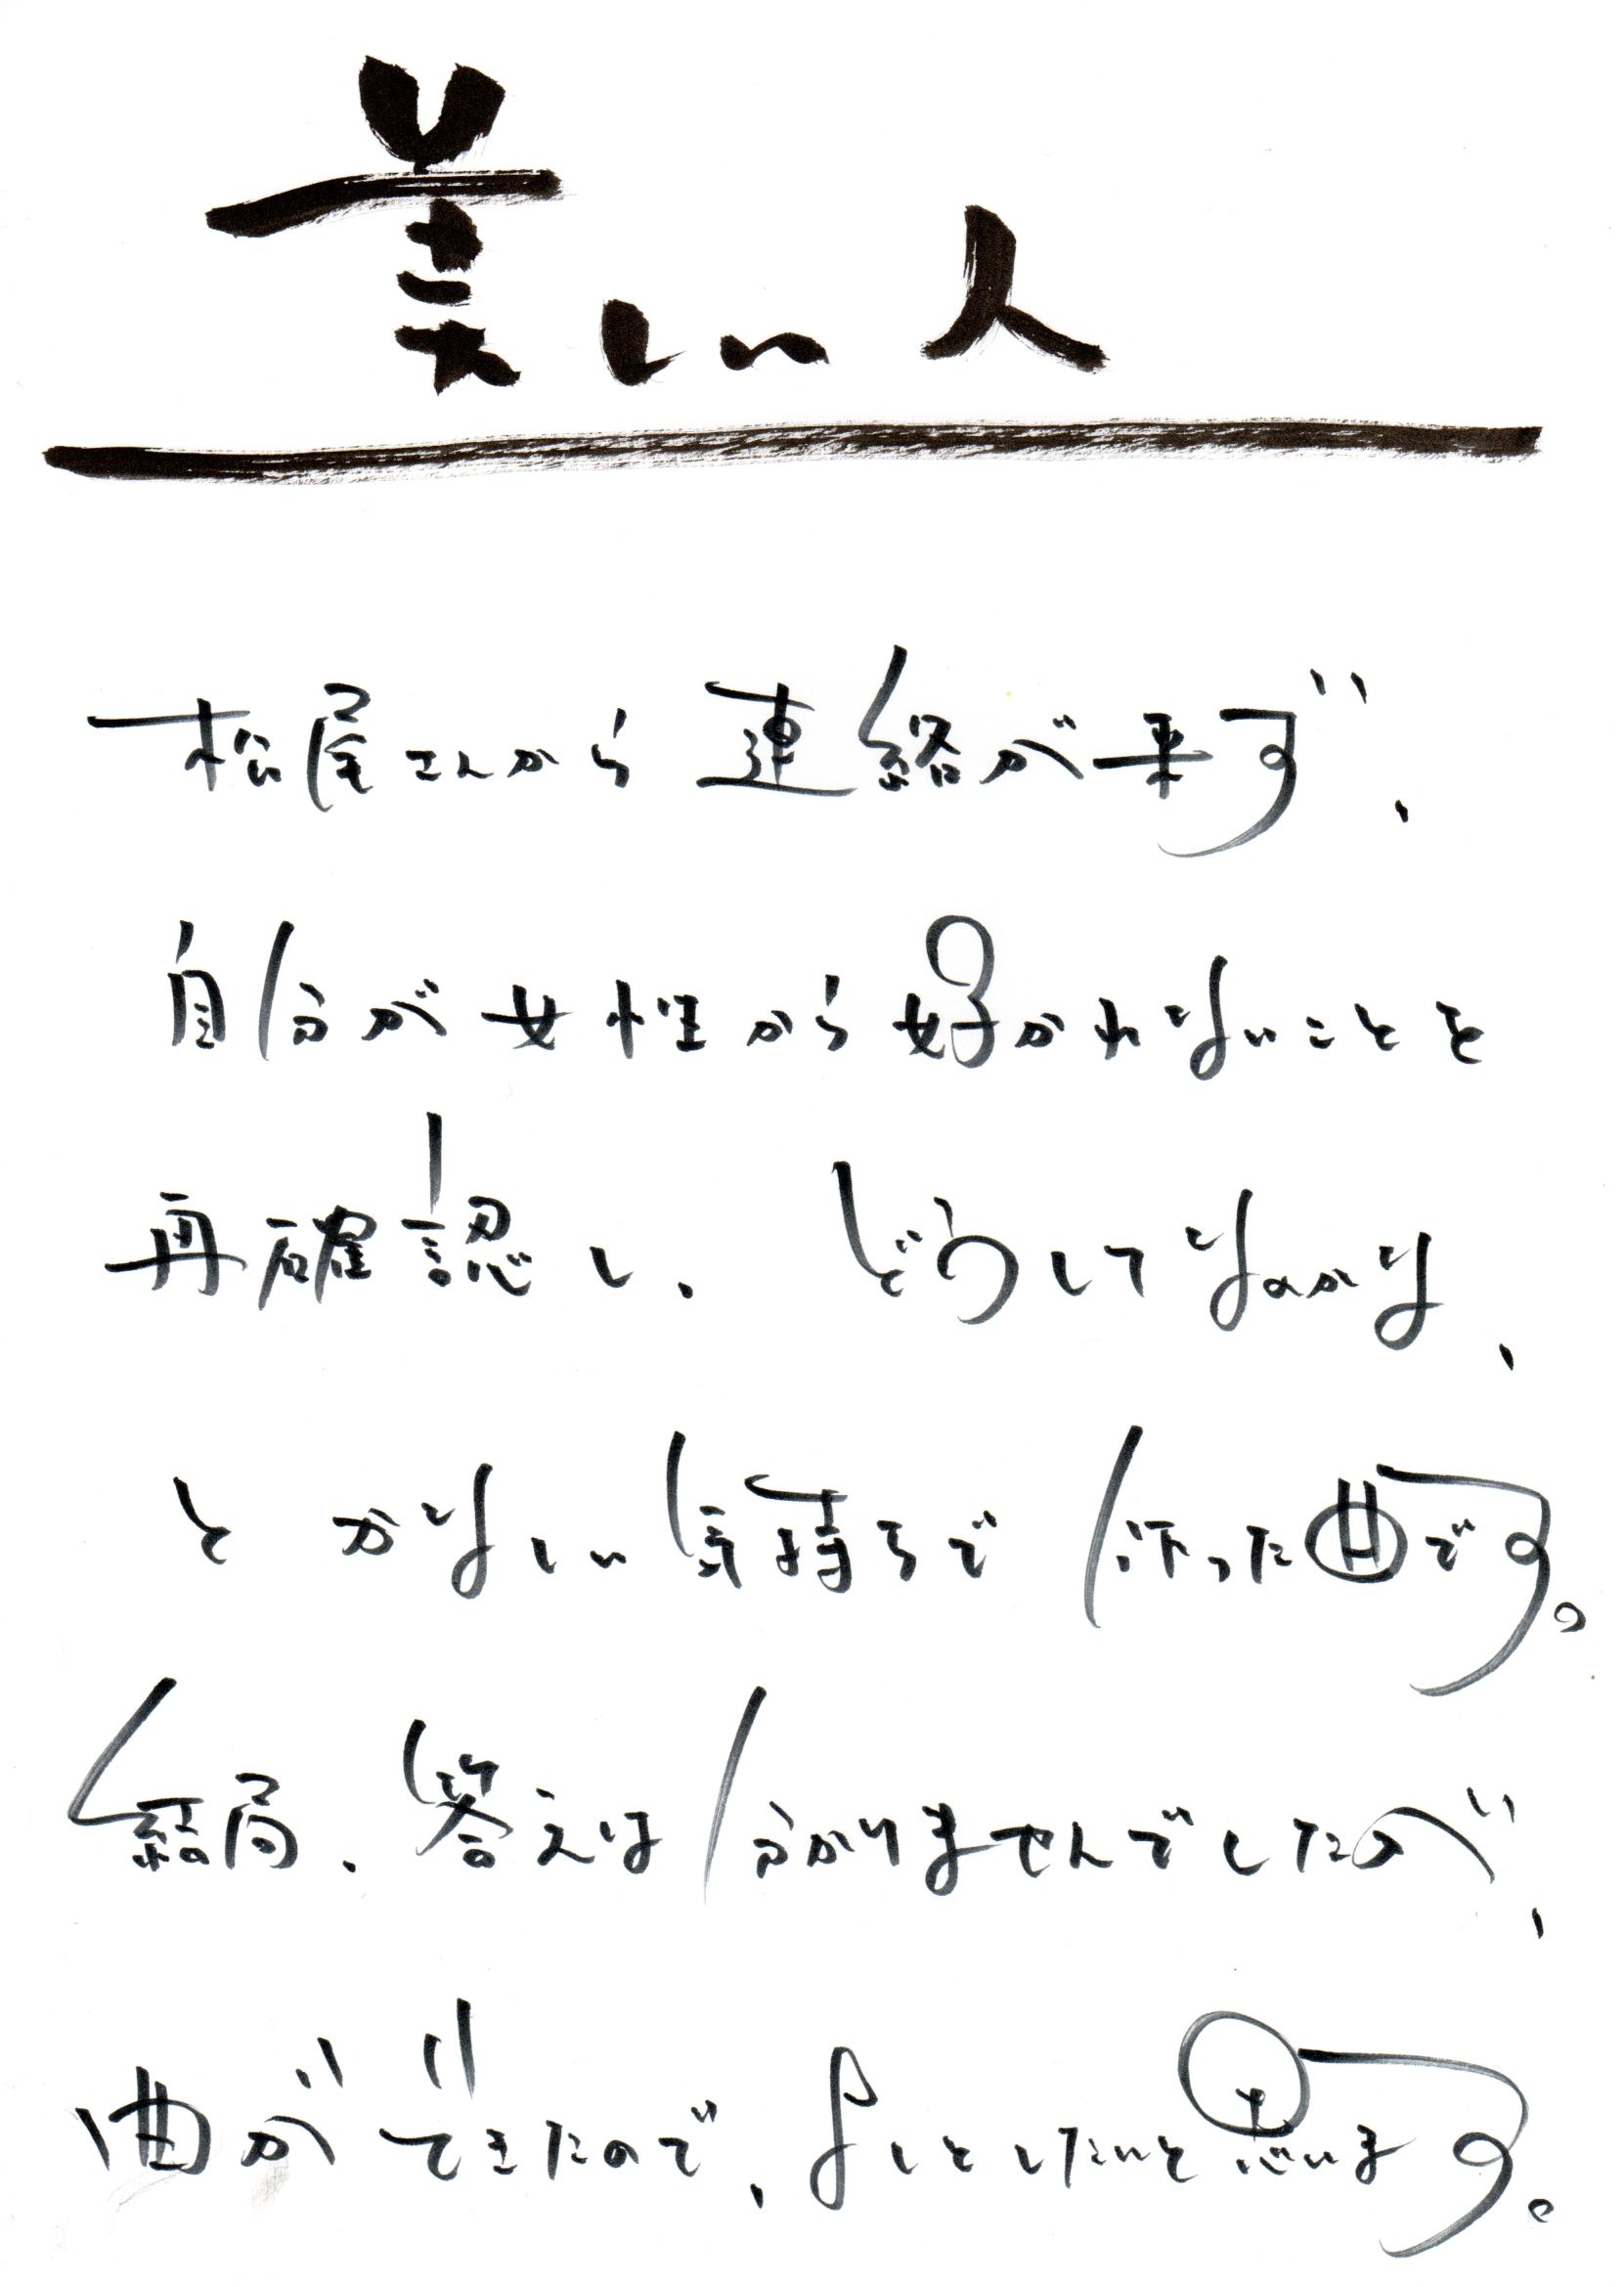 美しい人
松尾さんから連絡が来ず、
自分が女性から好かれないことを
再確認し、どうしてなのかな、
とかなしい気持ちで作った曲です。
結局、答えは分かりませんでしたが、
曲ができたので、よしとしたいと思います。